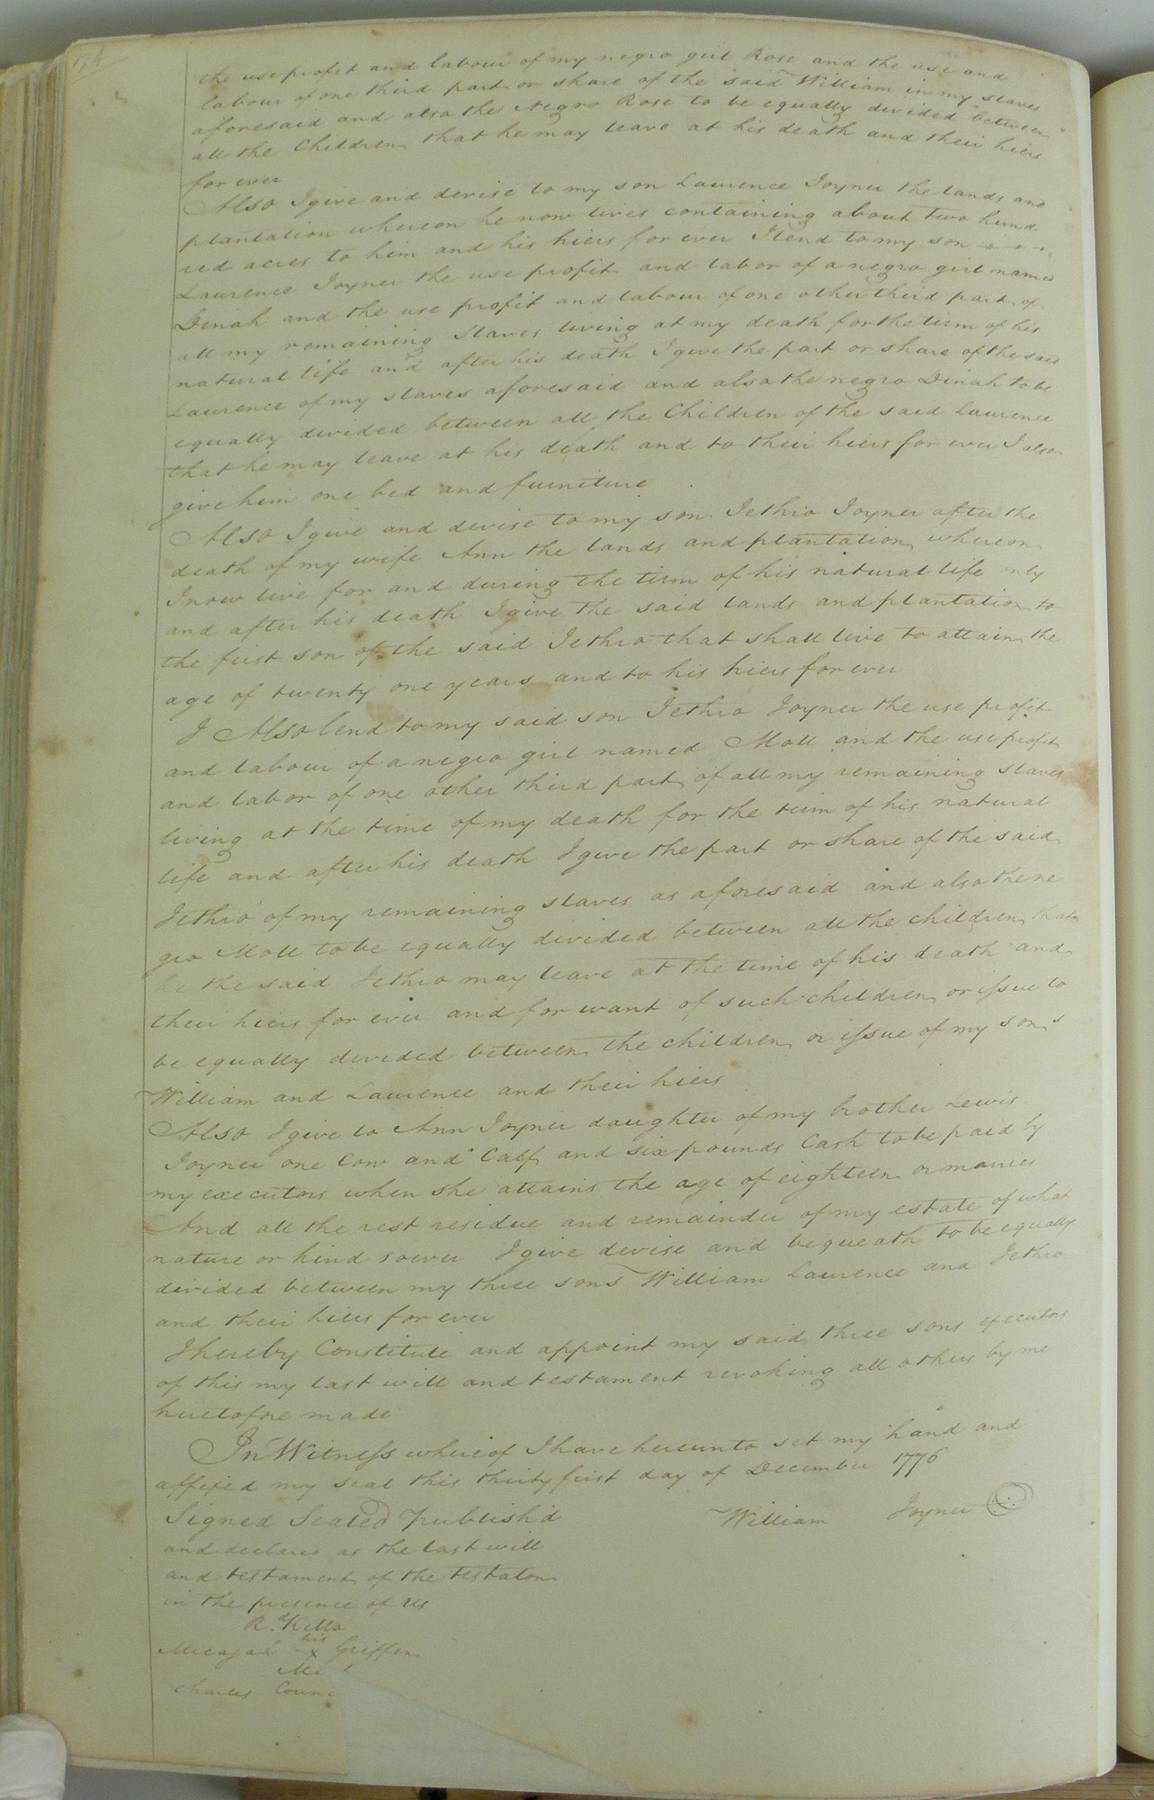 174
the use profit and labour of my negro girl Rose and the use and
labour of one third part or share of the said William in my slaves
aforesaid and also the Negro Rose to be equally divided between
all the Children that he may leave at his death and their hiers
for ever
Also I give and devise to my son Laurence Joyner the lands and
plantation whereon he now lives containing about two hund
red acres to him and his hiers for ever I lend to my son
Laurence Joyner the use profit and labor of a negro girl named
Dinah and the use profit and labour of one other theird part of
all my romaining slaves living at my death for the tirm of his
natural life and after his death I give the part or share of the said
Laurence of my slaves aforesaid and also the negro Dinah to be
equally divided between all the Children of the said Laurence
that he may leave at his death and to their hiers for ever I also
give him one bed and furniture
Also I give and devise to my son Jethro Joyner after the
death of my wife Ann the lands and plantation whereon
I now live for and during the tirm of his natural life only
and after his death I give the said lands and plantation to
the first son of the said Jethro that shall live to attain the
age of twenty one years and to his hiers for ever
I Also lend to my said son Jethro Joyner the use profit
and labour of a negro girl named Moll and the use profit
and labor of one other third part of all my remaining slaves
living at the time of my death for the tirm of his natural
life and after his death I give the part or share of the said
Jethro of my remaining slaves as aforesaid and also the ne
gro Moll to be equally divided between all the children that
he the said Jethro may leave at the time of his death and
their hiers for ever and for want of such children or issue to
be equally divided between the children or issue of my sons
William and Laurence and their hiers
Also I give to Ann Joyner daughter of my brother Lewis
Joyner one Cow and Calf and six pounds Cash to be paid by
my executors when she attains the age of eighteen or marries
And all the rest residue and remainder of my estate of what
nature or kind soever I give devise and bequeath to be equally
divided between my three sons William Laurence and Jethro
and their hiers for ever
I hereby Constitute and appoint my said three sons executors
of this my last will and testament revoking all others by me
heretofore made
In Witness whereof I have hereunto set my hand and
affixed my seal this thirty first day of December 1776
Signed Sealed Publish'd William Joyner
and declared as the last will
and testament of the testator
in the presence of us
Rd. Kello
his
Micajah x Griffen
Charles